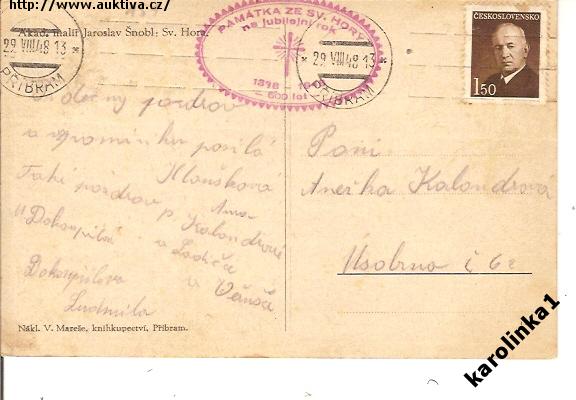 http://www.auktiva.cz
Akad. malíř Jaroslav Šnobl: Sv. Hora.
29.VIII 48 13
PŘÍBRAM
PAMÁTKA ZE SV. HORY
na jubilejní rok
600 let
29.VIII 48 13
PŘÍBRAM
ČESKOSLOVENSKO
1.50
pozdrav
a vzpomínku posílá
Hloušková
Také pozdrav p. Kalandrové
Anna
a Ladiča
a Věnša.
Dokoupilova
Ludmila
Paní
Anežka Kalandrová
Úsobrno č 62
Nákl. V. Mareše, knihkupectví, Příbram.
karolinka1